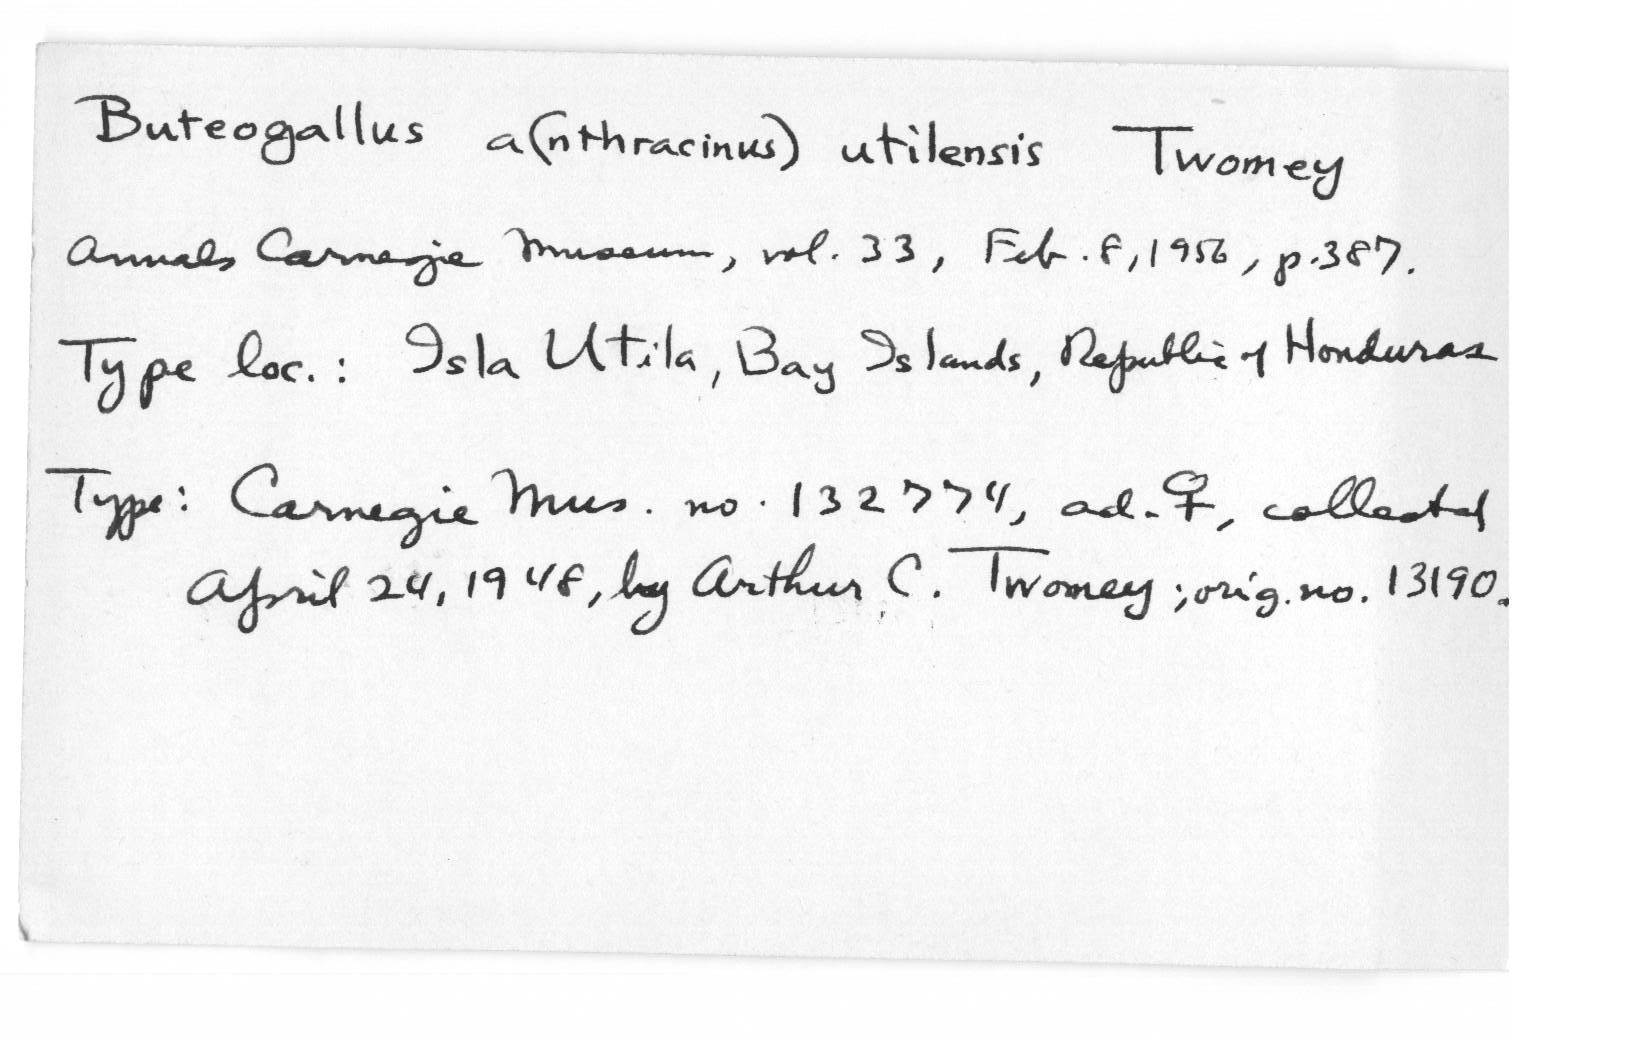 Buteogallus a(nthracinus) utilensis Twomey
Annals Carnegie Museum, vol. 33, Feb. 8, 1956, p. 387.
Type loc.: Isla Utila, Bay Islands, Republic of Honduras
Type: Carnegie Mus. no. 132774, ad. ♀, collected
April 24, 1948, by Arthur C. Twomey; orig. no. 13190.